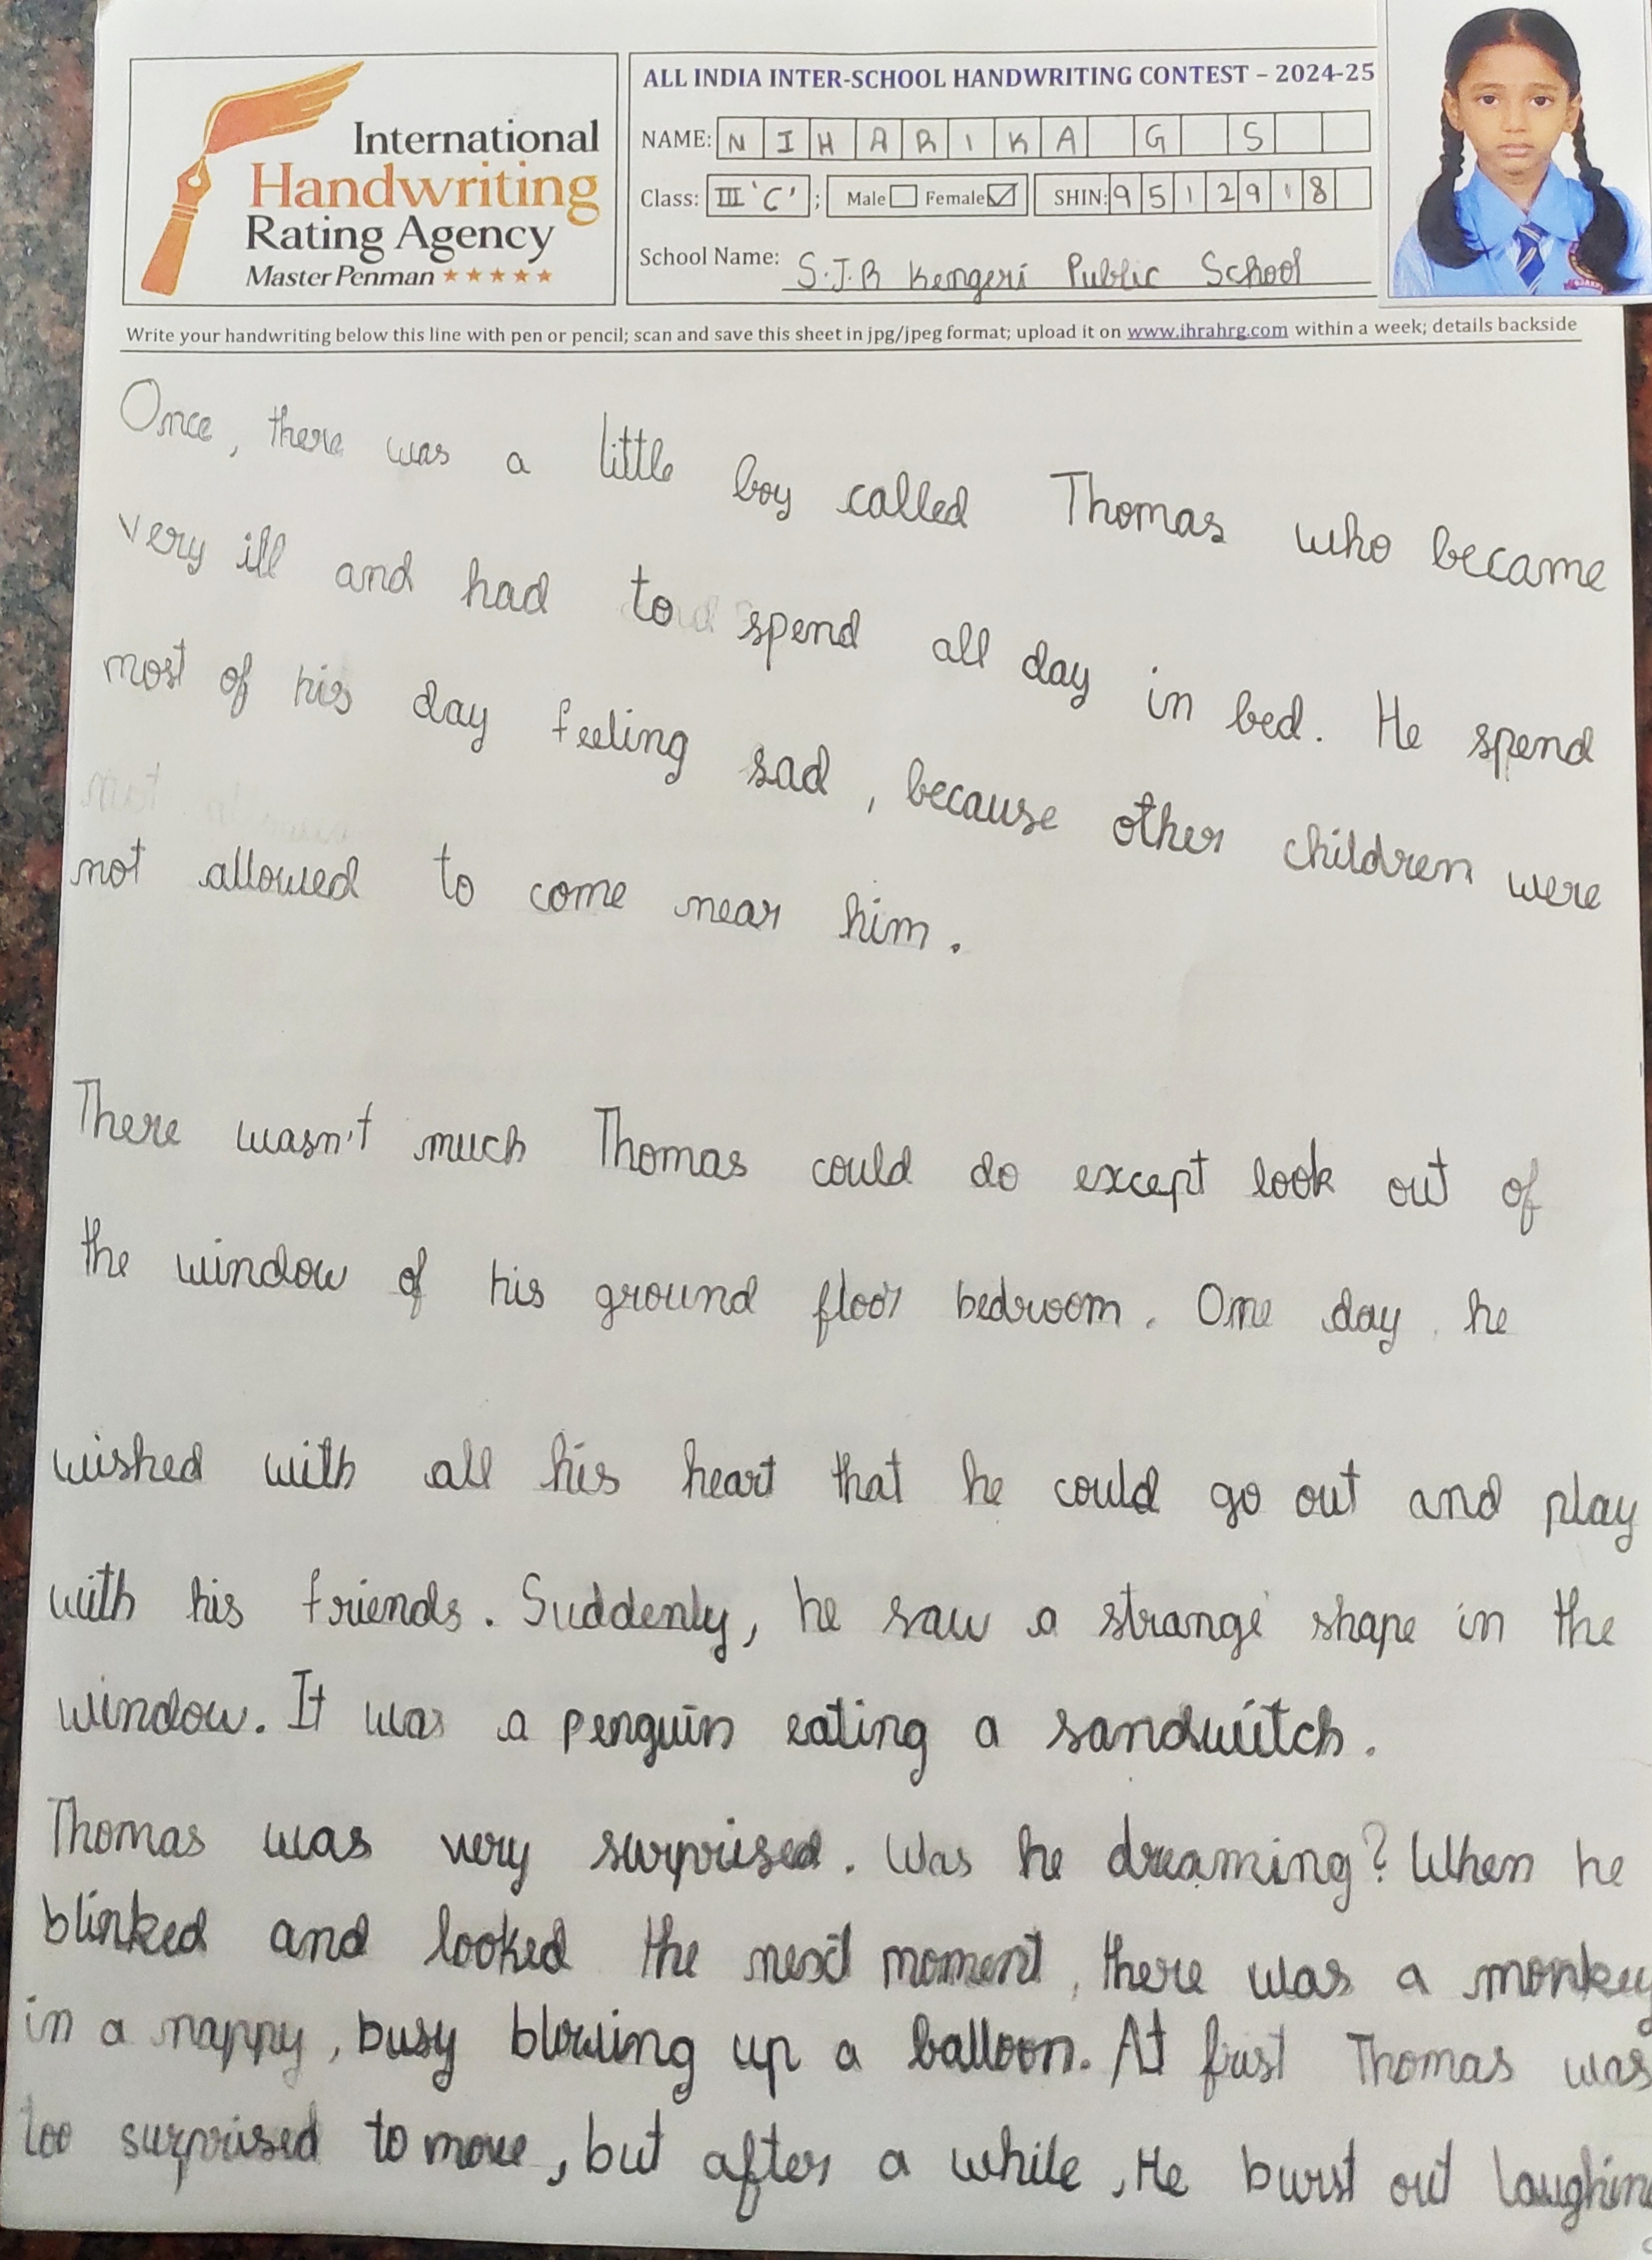 International
Handwriting
Rating Agency
Master Penman ★★★★★
ALL INDIA INTER-SCHOOL HANDWRITING CONTEST – 2024-25
NAME: NIHARIKA G S
Class: III 'C' ; Male Female SHIN: 95129118
School Name: S.J.R Kengeri Public School
Write your handwriting below this line with pen or pencil; scan and save this sheet in jpg/jpeg format; upload it on www.ihrahrg.com within a week; details backside
Once, there was a little boy called Thomas who became
very ill and had to spend all day in bed. He spend
most of his day feeling sad, because other children were
not allowed to come near him.
There wasn't much Thomas could do except look out of
the window of his ground floor bedroom. One day, he
wished with all his heart that he could go out and play
with his friends. Suddenly, he saw a strange shape in the
window. It was a penguin eating a sandwitch.
Thomas was very surprised. Was he dreaming? When he
blinked and looked the next moment, there was a monkey
in a nappy, busy blowing up a balloon. At first Thomas was
too surprised to move, but after a while, He burst out laughing